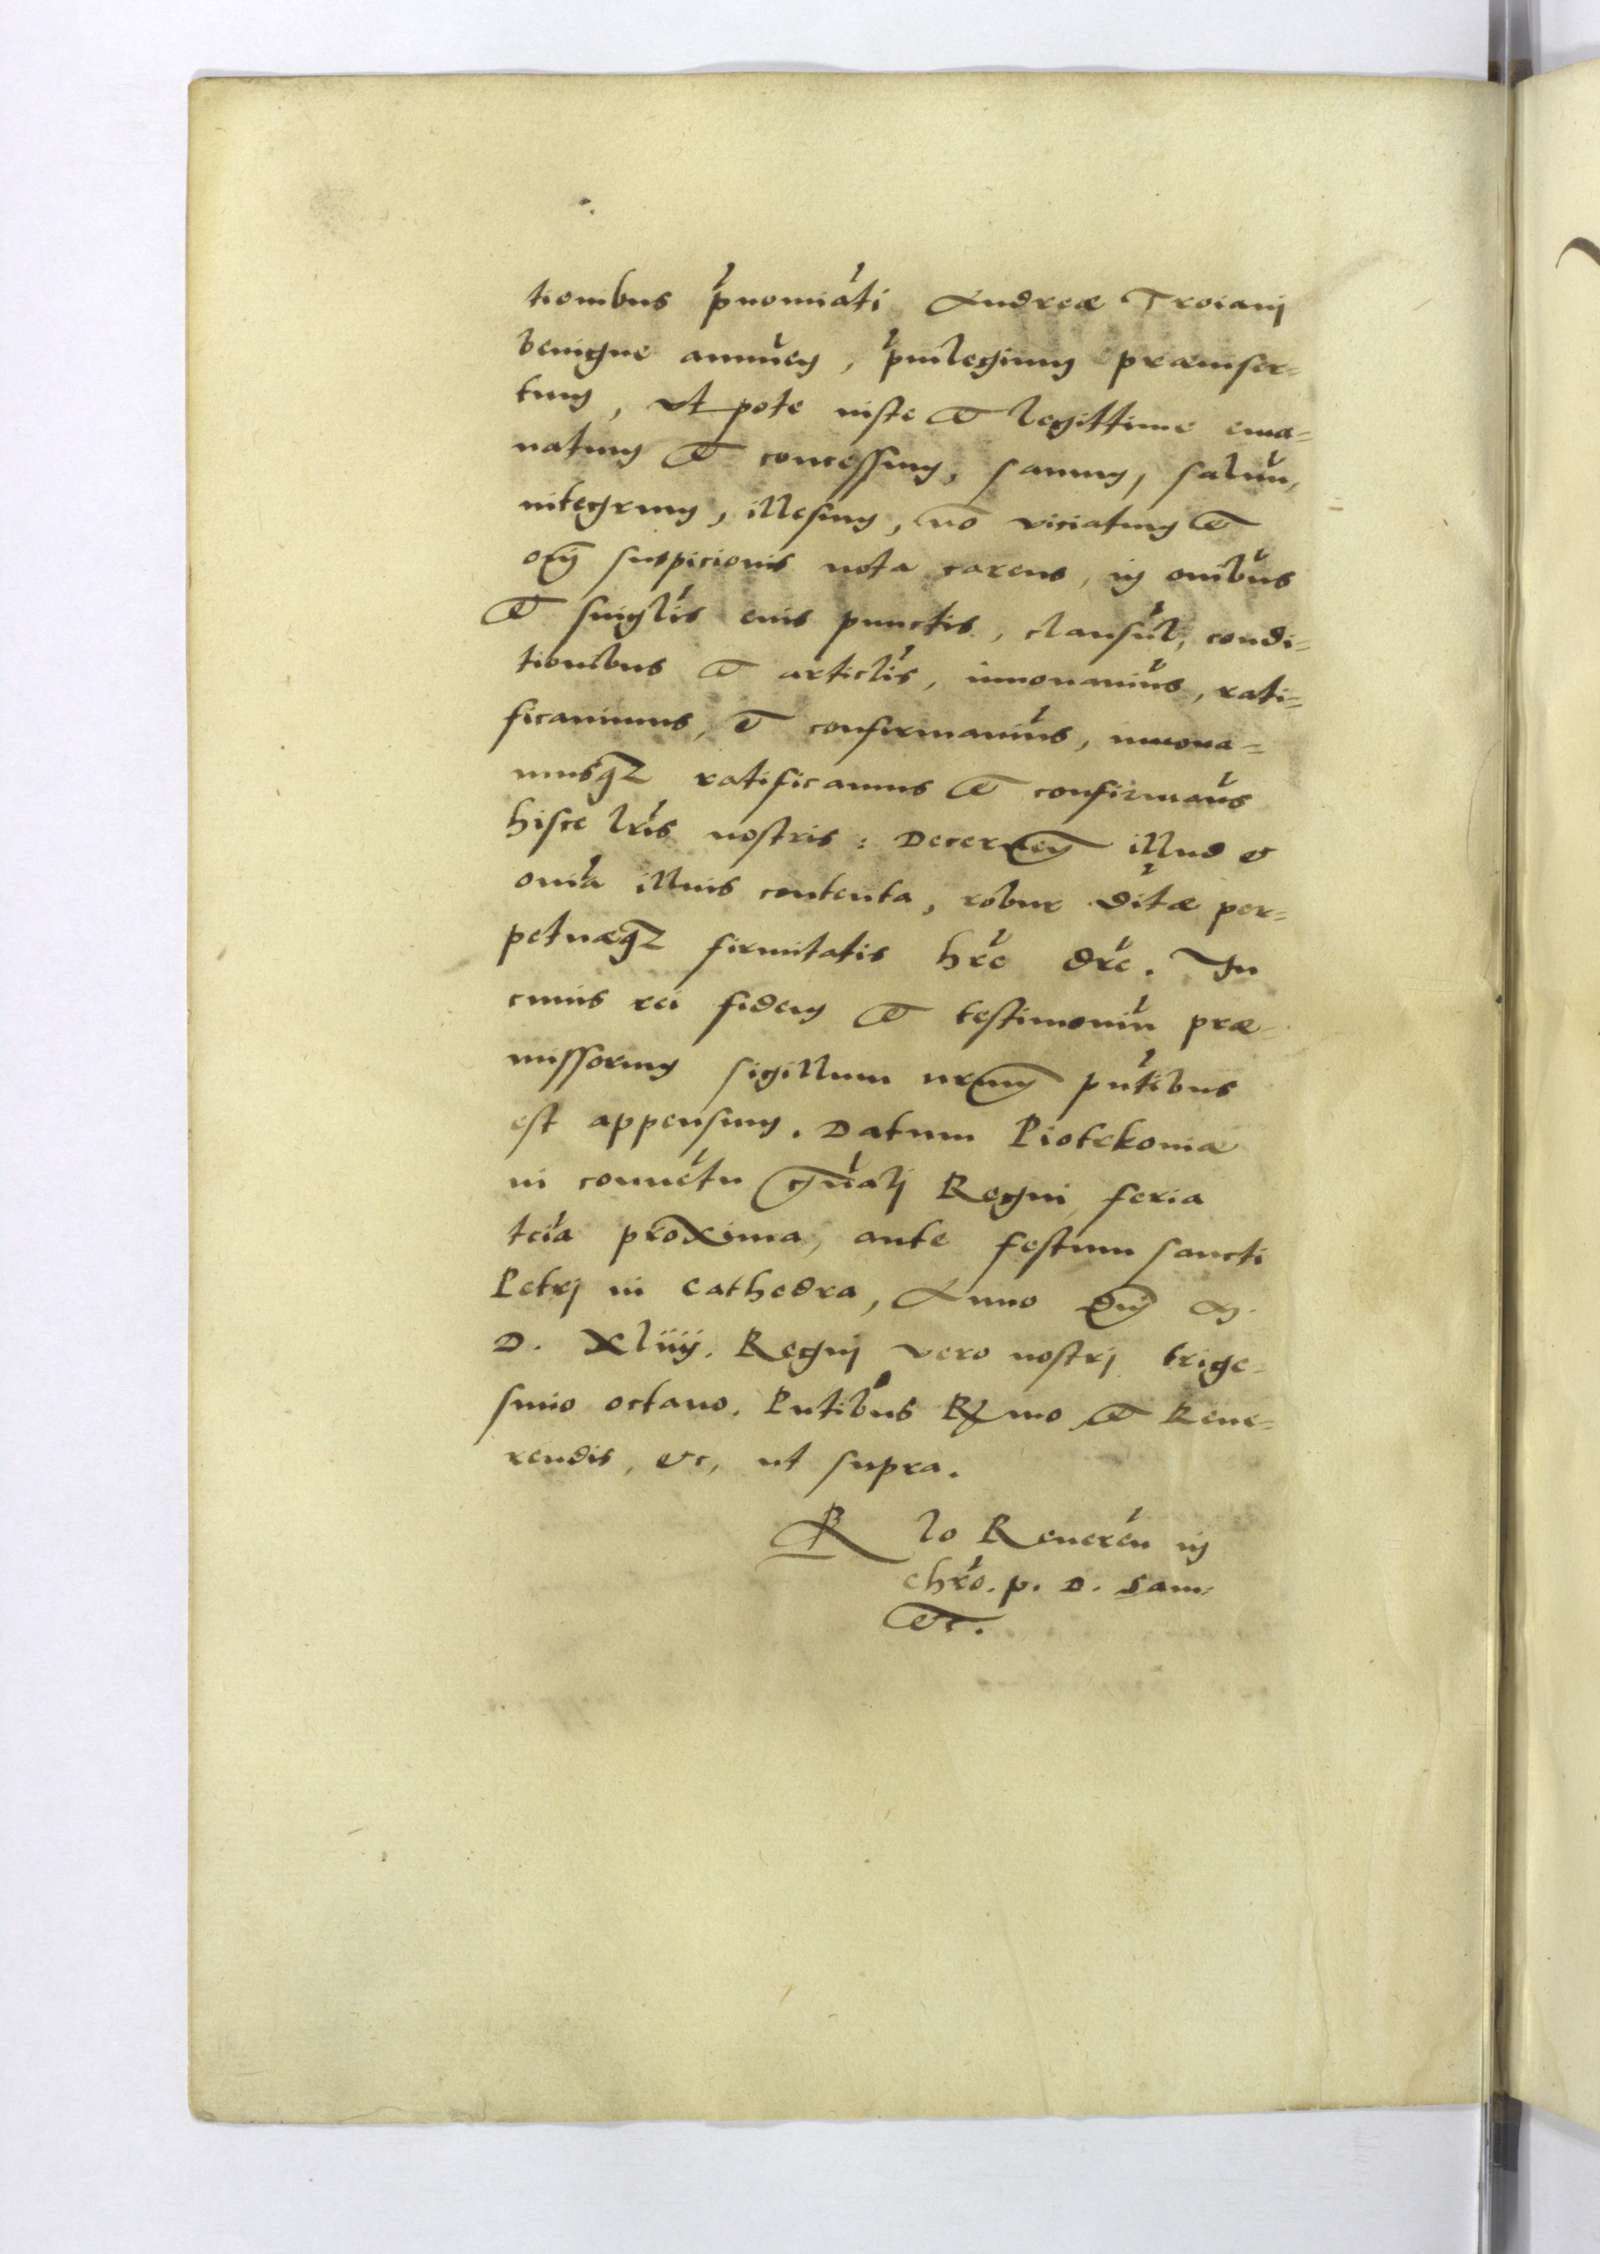 tionibus p̃nomiãti Andreæ Troianj
benigne annueñ, p̃uilegium præinser=
tum, vt pote iuste et legittime ema=
natum et concessum, sanum, saluũ,
integrum, illesum, nō viciatum et
om̄j suspicionis nota carens, in om̃ibus
et singl̃is eius punctis, clausul̃, condi=
tionibus et articl̃is, innouauim̃us, rati=
ficauimus, et confirmauim̃us, innoua=
musq₃ ratificamus et confirmam̃us
hisce lr̃is nostris: Decernen̄ illud &
om̃ia illius contenta, robur d̃itæ per=
petuæq₃ firmitatis hr̃e dr̃e. In
cuius rei fidem et testimoniũ præ
missorum sigillum nr̄um pñtibus
est appensum. Datum Piotrkouiæ
in conuẽtu gñalj Regni feria
tcĩa proxima, ante festum sancti
Petrj in Cathedra, Anno Dn̄j M.
D. Xliiij. Regnj vero nostrj trige=
simo octauo. Pñtibus Rmo et Reue=
rendis, &c, ut supra.
R lo Reuereñ in
chr̃o. p. D. Sam:
&c.